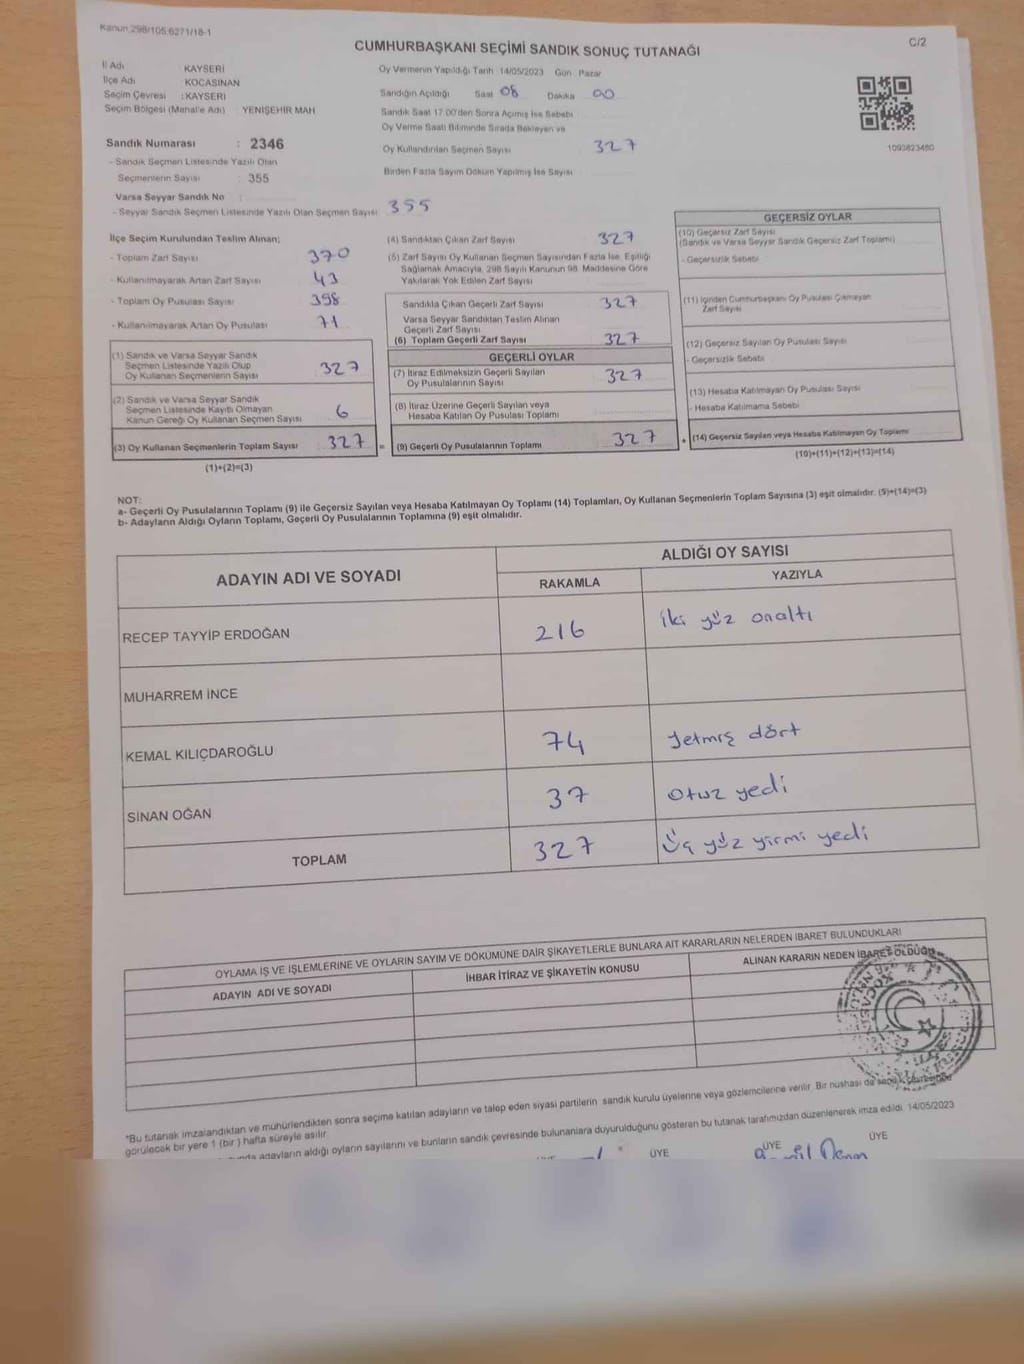 Kanun 298/105,6271/18-1
C/2
CUMHURBAŞKANI SEÇİMİ SANDIK SONUÇ TUTANAĞI
İl Adı KAYSERİ
İlçe Adı KOCASİNAN
Seçim Çevresi :KAYSERİ
Seçim Bölgesi (Mahalle Adı) YENİŞEHİR MAH
Oy Vermenin Yapıldığı Tarih 14/05/2023 Gün Pazar
Sandığın Açıldığı Saat 08 Dakika 00
Sandık Saat 17.00'den Sonra Açımış İse Sebebi
Oy Verme Saati Bitiminde Sırada Bekleyen ve
Oy Kullandırılan Seçmen Sayısı 327
Birden Fazla Sayım Döküm Yapılmış İse Sayısı
1093823480
Sandık Numarası : 2346
- Sandık Seçmen Listesinde Yazılı Olan
Seçmenlerin Sayısı : 355
Varsa Seyyar Sandık No :
- Seyyar Sandık Seçmen Listesinde Yazılı Olan Seçmen Sayısı 355
İlçe Seçim Kurulundan Teslim Alınan;
- Toplam Zarf Sayısı 370
- Kullanılmayarak Artan Zarf Sayısı 43
- Toplam Oy Pusulası Sayısı 398
- Kullanılmayarak Artan Oy Pusulası 71
(1) Sandık ve Varsa Seyyar Sandık
Seçmen Listesinde Yazılı Olup
Oy Kullanan Seçmenlerin Sayısı 327
(2) Sandık ve Varsa Seyyar Sandık
Seçmen Listesinde Kayıtlı Olmayan
Kanun Gereği Oy Kullanan Seçmen Sayısı 6
(3) Oy Kullanan Seçmenlerin Toplam Sayısı 327 =
(1)+(2)=(3)
(4) Sandıktan Çıkan Zarf Sayısı 327
(5) Zarf Sayısı Oy Kullanan Seçmen Sayısından Fazla İse, Eşitliği
Sağlamak Amacıyla, 298 Sayılı Kanunun 98. Maddesine Göre
Yakılarak Yok Edilen Zarf Sayısı
Sandıkta Çıkan Geçerli Zarf Sayısı 327
Varsa Seyyar Sandıktan Teslim Alınan
Geçerli Zarf Sayısı
(6) Toplam Geçerli Zarf Sayısı 327
GEÇERLİ OYLAR
(7) İtiraz Edilmeksizin Geçerli Sayılan
Oy Pusulalarının Sayısı 327
(8) İtiraz Üzerine Geçerli Sayılan veya
Hesaba Katılan Oy Pusulası Toplamı
(9) Geçerli Oy Pusulalarının Toplamı 327 +
GEÇERSİZ OYLAR
(10) Geçersiz Zarf Sayısı
(Sandık ve Varsa Seyyar Sandık Geçersiz Zarf Toplamı)
- Geçersizlik Sebebi
(11) İçinden Cumhurbaşkanı Oy Pusulası Çıkmayan
Zarf Sayısı
(12) Geçersiz Sayılan Oy Pusulası Sayısı
- Geçersizlik Sebebi
(13) Hesaba Katılmayan Oy Pusulası Sayısı
- Hesaba Katılmama Sebebi
(14) Geçersiz Sayılan veya Hesaba Katılmayan Oy Toplamı
(10)+(11)+(12)+(13)=(14)
NOT:
a- Geçerli Oy Pusulalarının Toplamı (9) ile Geçersiz Sayılan veya Hesaba Katılmayan Oy Toplamı (14) Toplamları, Oy Kullanan Seçmenlerin Toplam Sayısına (3) eşit olmalıdır. (9)+(14)=(3)
b- Adayların Aldığı Oyların Toplamı, Geçerli Oy Pusulalarının Toplamına (9) eşit olmalıdır.
ADAYIN ADI VE SOYADI
ALDIĞI OY SAYISI
RAKAMLA YAZIYLA
RECEP TAYYİP ERDOĞAN 216 iki yüz onaltı
MUHARREM İNCE
KEMAL KILIÇDAROĞLU 74 Yetmiş dört
SİNAN OĞAN 37 otuz yedi
TOPLAM 327 Üç yüz yirmi yedi
OYLAMA İŞ VE İŞLEMLERİNE VE OYLARIN SAYIM VE DÖKÜMÜNE DAİR ŞİKAYETLERLE BUNLARA AİT KARARLARIN NELERDEN İBARET BULUNDUKLARI
ADAYIN ADI VE SOYADI İHBAR İTİRAZ VE ŞİKAYETİN KONUSU ALINAN KARARIN NEDEN İBARET OLDUĞU
*Bu tutanak imzalandıktan ve mühürlendikten sonra seçime katılan adayların ve talep eden siyasi partilerin sandık kurulu üyelerine veya gözlemcilerine verilir. Bir nüshası da
görülecek bir yere 1 (bir) hafta süreyle asılır.
adayların aldığı oyların sayılarını ve bunların sandık çevresinde bulunanlara duyurulduğunu gösteren bu tutanak tarafımızdan düzenlenerek imza edildi. 14/05/2023
ÜYE ÜYE ÜYE